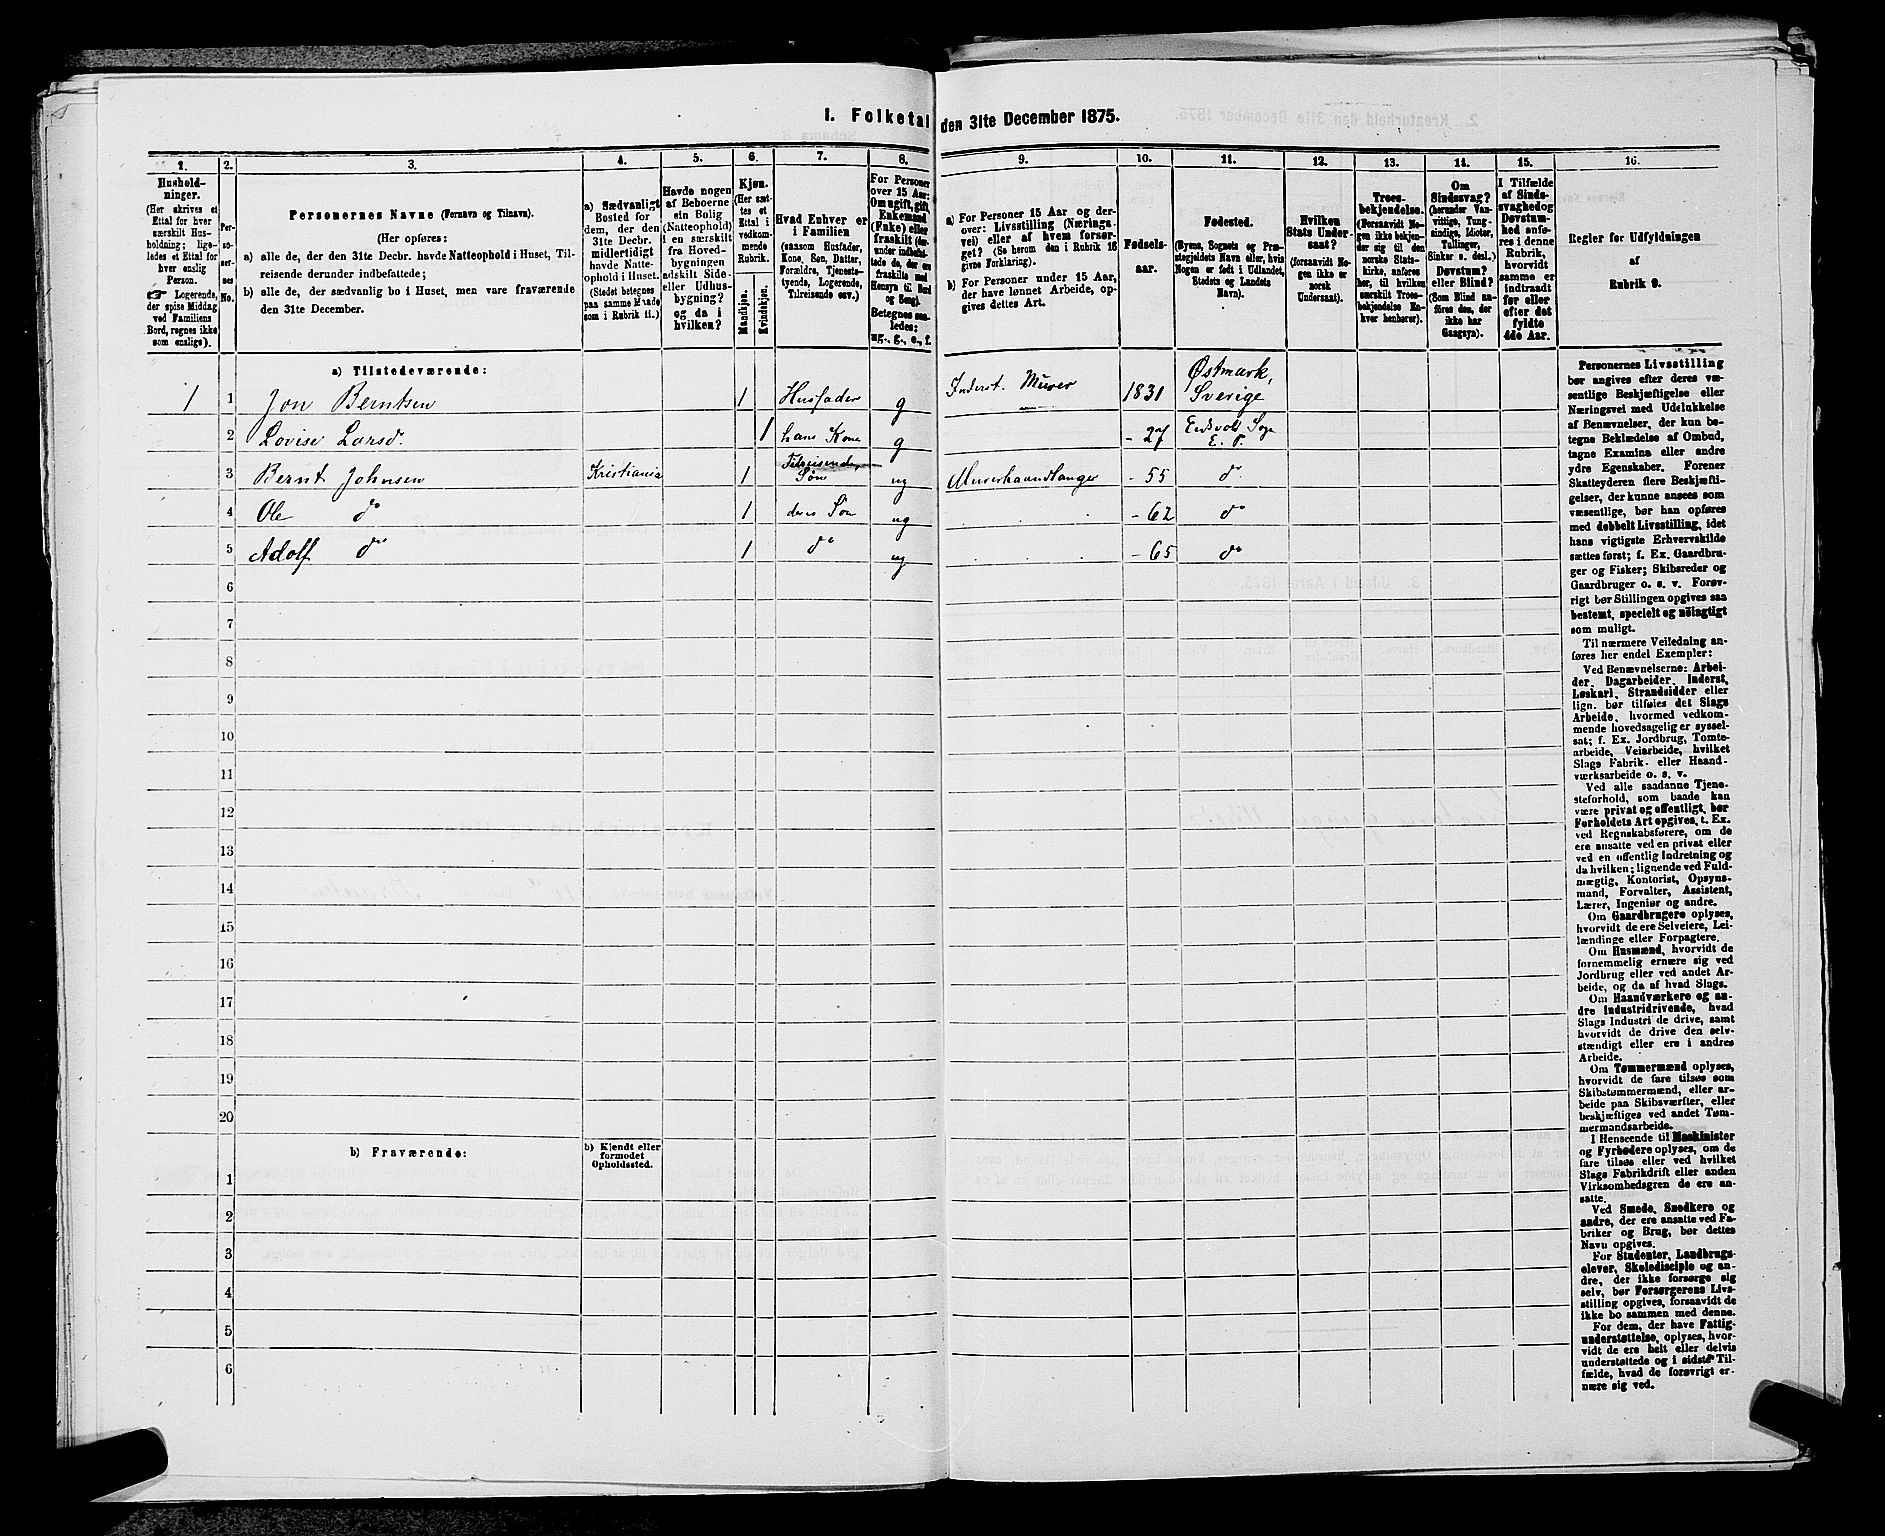 1. Folketal den 31te December 1875.
1. 2. 3. 4. 5. 6. 7. 8. 9. 10. 11. 12. 13. 14. 15. 16.
Hushold-
ninger.
(Her skrives et
Ettal for hver
særskilt Hus-
holdning; lige-
ledes et Ettal for
hver enslig
Person.
☞ Logerende,
der spise Middag
ved Familiens
Bord, regnes ikke
som enslige).
Per-
so-
ner-
nes
No.
Personernes Navne (Fornavn og Tilnavn).
(Her opføres:
a) alle de, der den 31te Decbr. havde Natteophold i Huset, Til-
reisende derunder indbefattede;
b) alle de, der sædvanlig bo i Huset, men vare fraværende
den 31te December.
a) Sædvanligt
Bosted for
dem, der den
31te Decbr.
midlertidigt
havde Natte-
ophold i Huset.
(Stedet betegnes
paa samme Maade
som i Rubrik 11.)
Havde nogen
af Beboerne
sin Bolig
(Natteophold)
i en særskilt
fra Hoved-
bygningen
adskilt Side-
eller Udhus-
bygning?
og da i
hvilken?
Kjøn.
(Her sæt-
tes et
Ettal i
vedkom-
mende
Rubrik.
Mandkjøn.
Kvindekjøn.
Hvad Enhver er
i Familien
(saasom Husfader,
Kone, Søn, Datter,
Forældre, Tjeneste-
tyende, Logerende,
Tilreisende osv.)
For Personer
over 15 Aar:
Om ugift, gift
Enkemand
(Enke) eller
fraskilt (der-
under indbefat-
tede de, der ere
fraskilte med
Hensyn til Bord
og Seng).
Betegnes saa-
ledes:
ug., g., e., f.
a) For Personer 15 Aar og der-
over: Livsstilling (Nærings-
vei) eller af hvem forsør-
get? (Se herom den i Rubrik 16
givne Forklaring).
b) For Personer under 15 Aar,
der have lønnet Arbeide, op-
gives dettes Art.
Fødsels-
aar.
Fødested.
(Byens, Sognets og Præ-
stegjeldets Navn eller, hvis
Nogen er født i Udlandet,
Stedets og Landets
Navn).
Hvilken
Stats Under-
saat?
(forsaavidt No-
gen ikke er
norsk
Undersaat).
Troes-
bekjendelse.
(Forsaavidt No-
gen ikke bekjen-
der sig til den
norske Stats-
kirke, anføres
her, til hvilken
særskilt Troes-
bekjendelse En-
hver henhører).
Om
Sindssvag?
(herunder Van-
vittige, Tung-
sindige, Idioter,
Tullinger,
Sinker o. desl.)
Døvstum?
eller Blind?
(Som Blind an-
føres den, der
ikke har
Gangsyn).
I Tilfælde
af Sinds-
svaghed og
Døvstum-
hed anfø-
res i denne
Rubrik,
hvorvidt
samme er
indtraadt
før eller
efter det
fyldte
4de Aar.
Regler for Udfyldningen
af
Rubrik 9.
a) Tilstedeværende:
1 1 Jon Berntsen 1 Husfader g Inderst. Murer 1831 Østmark, Sverige
2 Lovise Larsd. 1 hans Kone g - 27 Eidsvold Sogn E. P.
3 Bernt Johnsen Kristiania 1 Tilreisende, Søn ug Murerhaandlanger - 55 do
4 Ole do 1 deres Søn ug - 62 do
5 Adolf do 1 do ug - 65 do
6
7
8
9
10
11
12
13
14
15
16
17
18
19
20
b) Fraværende:
b) Kjendt eller
formodet
Opholdssted.
1
2
3
4
5
6
Personernes Livsstilling
bør angives efter deres væ-
sentlige Beskjæftigelse eller
Næringsvei med Udelukkelse
af Benævnelser, der kun be-
tegne Beklædelse af Ombud,
tagne Examina eller andre
ydre Egenskaber. Forener
Skatteyderen flere Beskjæfti-
gelser, der kunne ansees som
væsentlige, bør han opføres
med dobbelt Livsstilling, idet
hans vigtigste Erhvervskilde
sættes først; f. Ex. Gaardbru-
ger og Fisker; Skibsreder og
Gaardbruger o. s. v. Forøv-
rigt bør Stillingen opgives saa
bestemt, specielt og nöiagtigt
som muligt.
Til nærmere Veiledning an-
føres her endel Exempler:
Ved Benævnelserne: Arbei-
der, Dagarbeider, Inderst,
Løskarl, Strandsidder eller
lign. bør tilføies det Slags
Arbeide, hvormed vedkom-
mende hovedsagelig er syssel-
sat; f. Ex. Jordbrug, Tomte-
arbeide, Veiarbeide, hvilket
Slags Fabrik- eller Haand-
værksarbeide o. s. v.
Ved alle saadanne Tjene-
steforhold, som baade kan
være privat og offentligt, bør
Forholdets Art opgives, t. Ex.
ved Regnskabsførere, om de
ere ansatte ved en privat eller
ved en offentlig Indretning og
da hvilken; lignende ved Fuld-
mægtig, Kontorist, Opsyns-
mand, Forvalter, Assistent,
Lærer, Ingeniør og andre.
Om Gaardbrugere oplyses,
hvorvidt de ere Selveiere, Lei-
lændinge eller Forpagtere.
Om Husmænd, hvorvidt de
fornemmelig ernære sig ved
Jordbrug eller ved andet Ar-
beide, og da af hvad Slags.
Om Haandværkere og an-
dre Industridrivende, hvad
Slags Industri de drive, samt
hvorvidt de drive den selv-
stændigt eller ere i andres
Arbeide.
Om Tømmermænd oplyses,
hvorvidt de fare tilsøs som
Skibstømmermænd, eller ar-
beide paa Skibsværfter, eller
beskjæftiges ved andet Tøm-
mermandsarbeide.
I Henseende til Maskinister
og Fyrbødere oplyses, om de
fare tilsøs eller ved hvilket
Slags Fabrikdrift eller anden
Virksomhedsgren de ere an-
satte.
Ved Smede, Snedkere og
andre, der ere ansatte ved Fa-
briker og Brug, bør dettes
Navn opgives.
For Studenter, Landbrugs-
elever, Skoledisciple og an-
dre, der ikke forsørge sig
selv, bør Forsørgerens Livs-
stilling opgives, forsaavidt de
ikke bo sammen med denne.
For dem, der have Fattig-
understøttelse, oplyses, hvor-
vidt de ere helt eller delvis
understøttede og i sidste Til-
fælde, hvad de forøvrigt er-
nære sig ved.